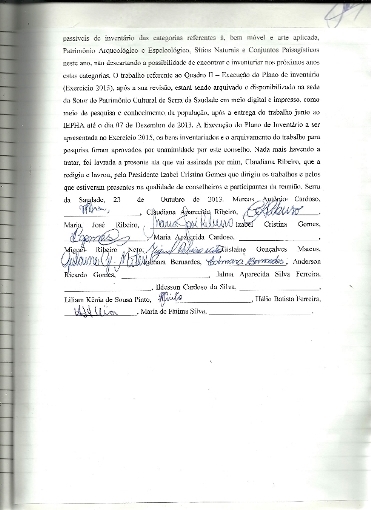 passíveis de inventário das categorias referentes à, bem móvel e arte aplicada,
Patrimônio Arqueológico e Espeleológico, Sítios Naturais e Conjuntos Paisagísticos
neste ano, não descartando a possibilidade de encontrar e inventariar nos próximos anos
estas categorias. O trabalho referente ao Quadro II – Execução do Plano de inventário
(Exercício 2015), após a sua revisão, estará sendo arquivado e disponibilizado na sede
do Setor do Patrimônio Cultural de Serra da Saudade em meio digital e impresso, como
meio de pesquisa e conhecimento da população, após a entrega do trabalho junto ao
IEPHA até o dia 07 de Dezembro de 2013. A Execução do Plano de Inventário a ser
apresentada no Exercício 2015, os bens inventariados e o arquivamento do trabalho para
pesquisa foram aprovados por unanimidade por este conselho. Nada mais havendo a
tratar, foi lavrada a presente ata que vai assinada por mim, Claudiana Ribeiro, que a
redigiu e lavrou, pela Presidente Izabel Cristina Gomes que dirigiu os trabalhos e pelos
que estiveram presentes na qualidade de conselheiros e participantes da reunião. Serra
da Saudade, 23 de Outubro de 2013. Marcus Antônio Cardoso,
, Claudiana Aparecida Ribeiro,
Maria José Ribeiro, Maria José Ribeiro Izabel Cristina Gomes,
, Maria Aparecida Cardoso,
Miguel Ribeiro Neto, Gislaine Gonçalves Mateus,
Bernardes, Anderson
Ricardo Gomes, , Jalma Aparecida Silva Ferreira,
, Cardoso da Silva,
Liliam Kênia de Sousa Pinto, , Hélio Batista Ferreira,
, Maria de Fatima Silva,